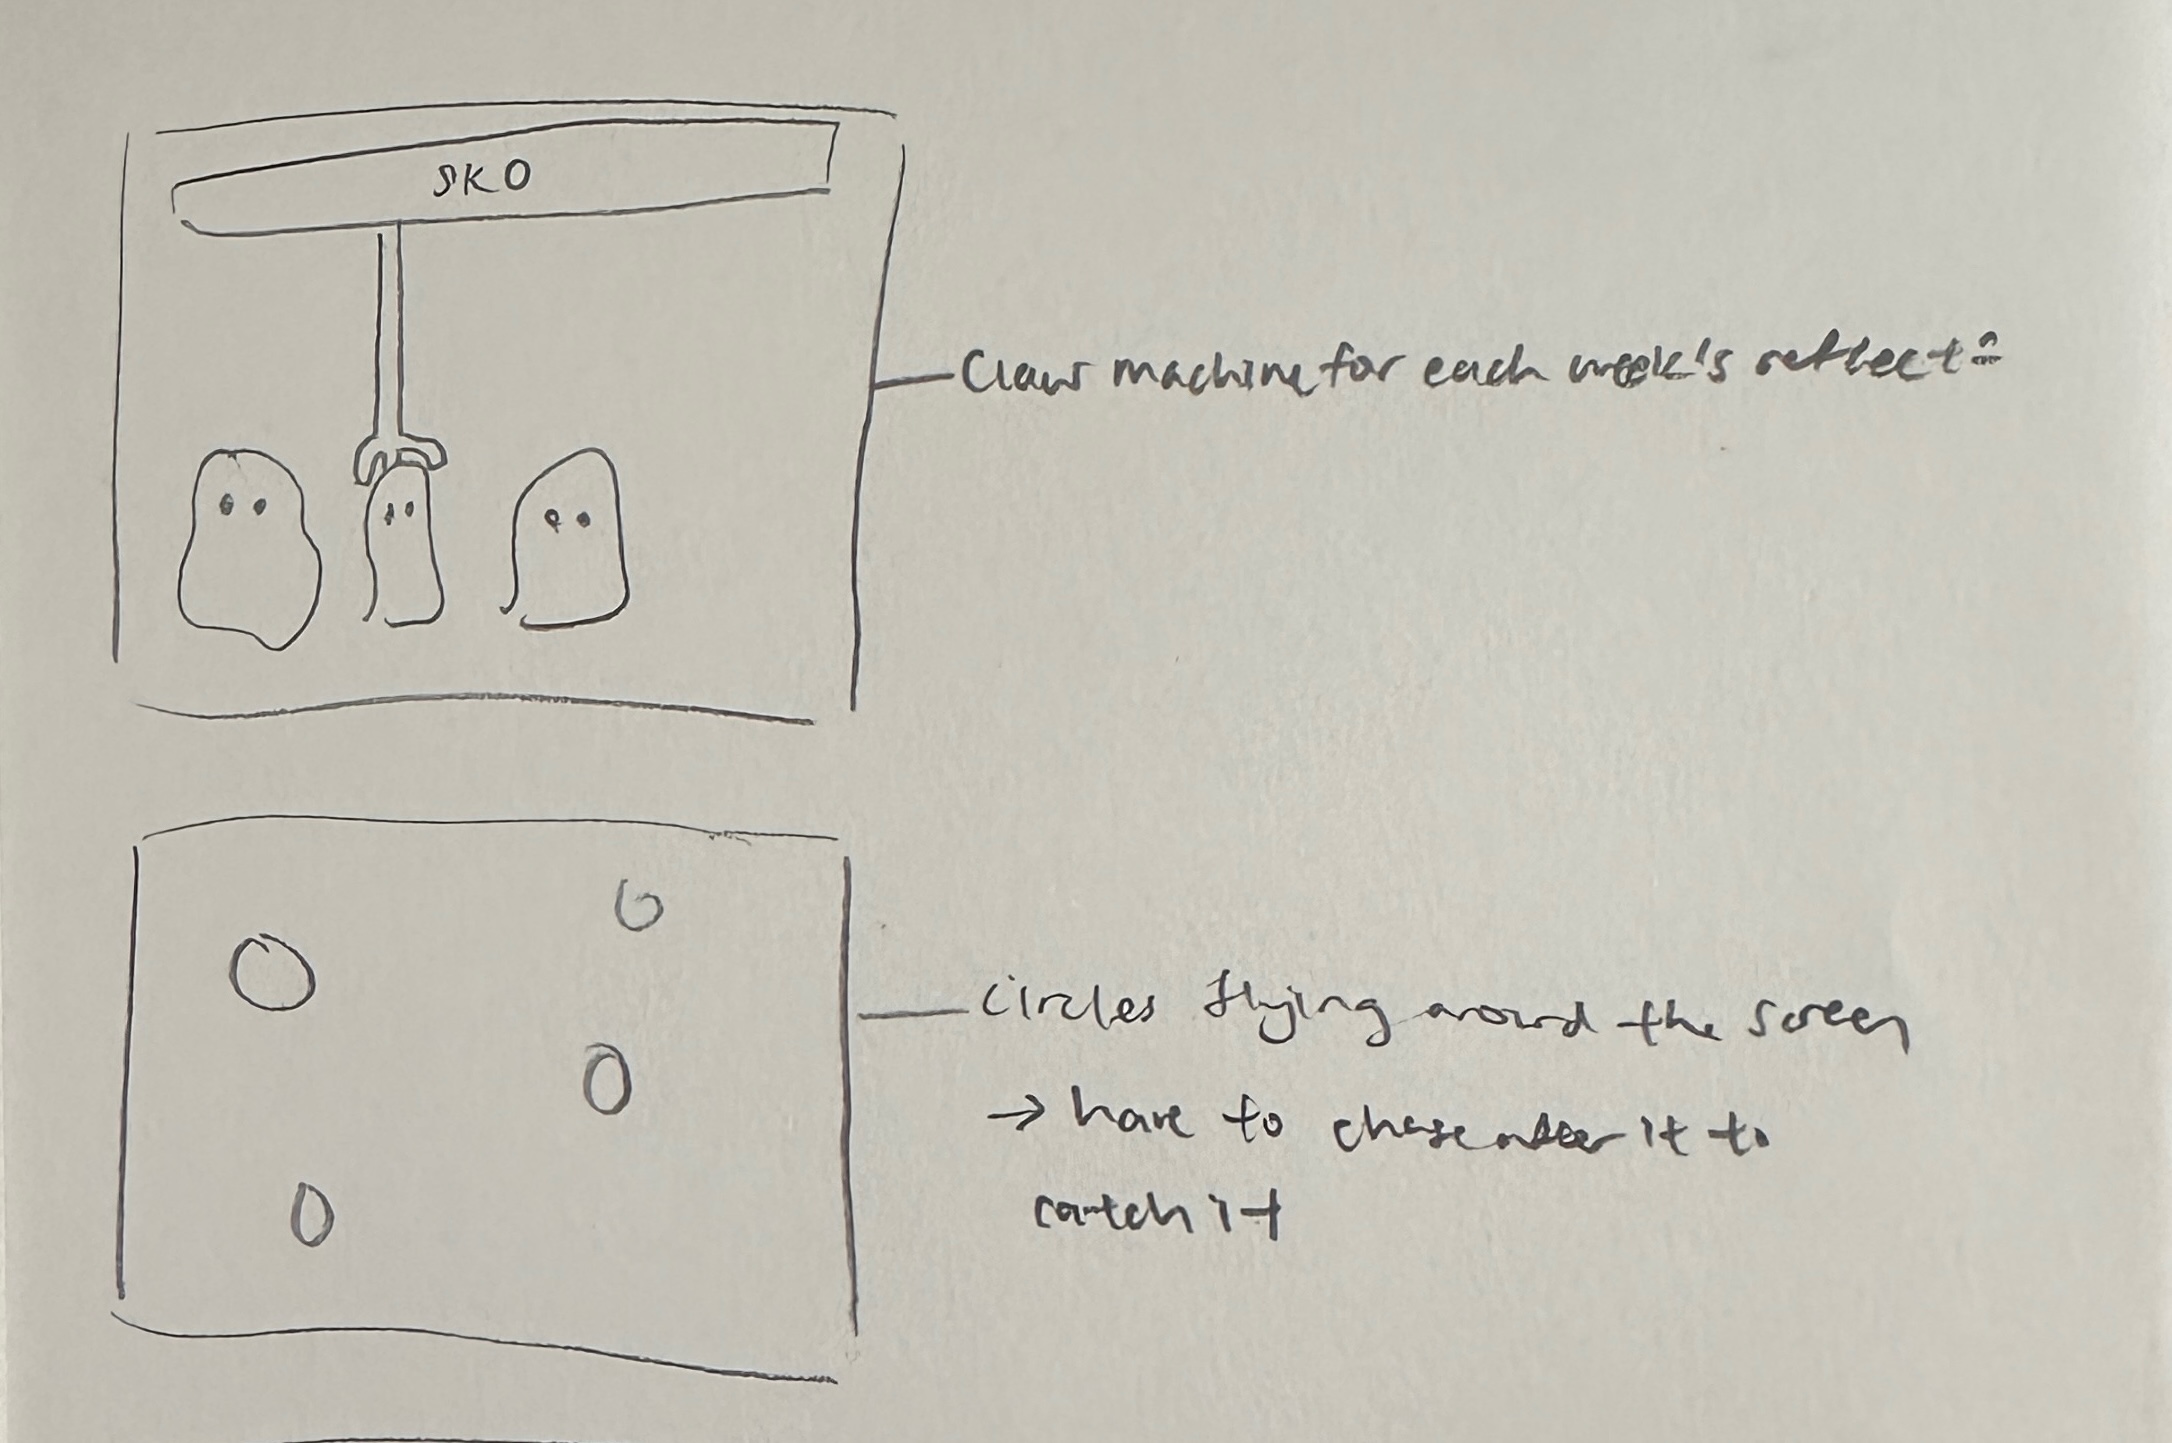 SKO
Claw machine for each week's reflect
Circles flying around the screen
→ have to chase after it to
catch it